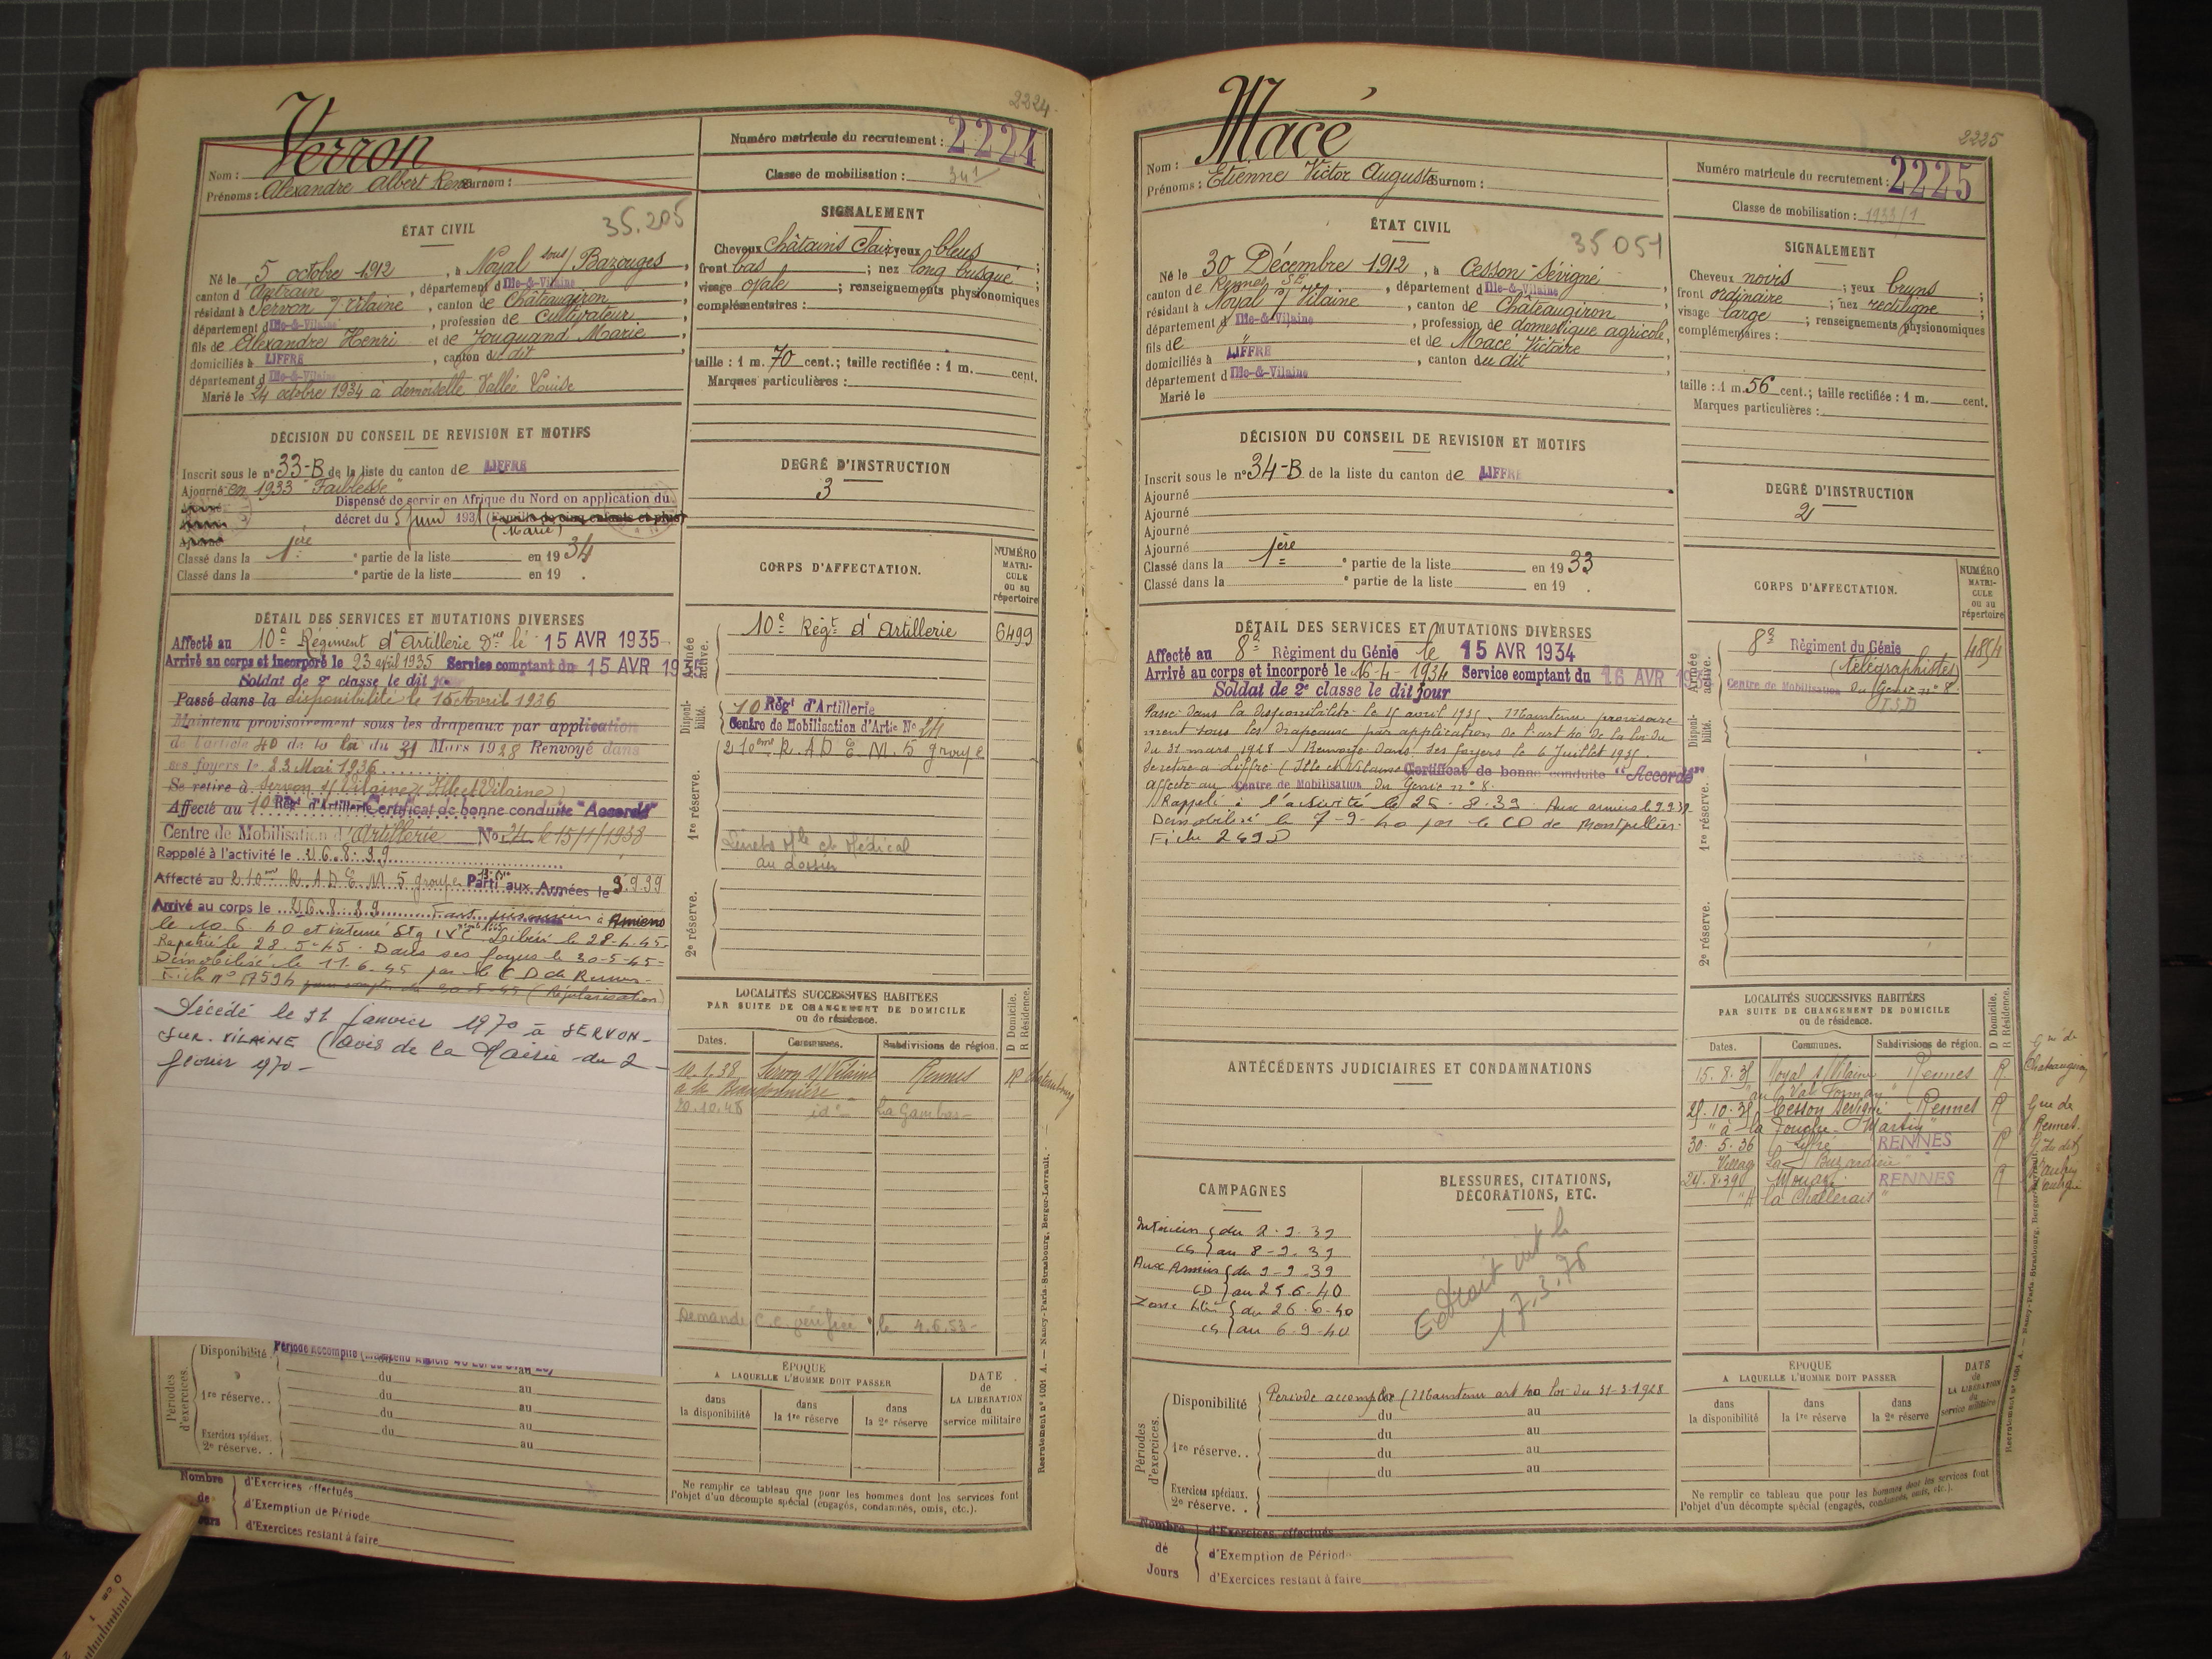 2224
Verron
Nom :
Prénoms : Alexandre Albert René Surnom :
Numéro matricule du recrutement : 2224
Classe de mobilisation : 34/1
ÉTAT CIVIL
35.205
Né le 5 octobre 1912, à Noyal sous/ Bazouges,
canton d'Antrain, département d Ille-&-Vilaine
résidant à Servon s/ Vilaine, canton de Châteaugiron
département d Ille-&-Vilaine, profession de cultivateur
fils de Alexandre Henri et de Jouquand Marie
domiciliés à LIFFRE, canton du dit
département d Ille-&-Vilaine
Marié le 24 octobre 1934 à demoiselle Vallée Louise
SIGNALEMENT
Cheveux châtains clair yeux bleus ;
front bas ; nez long busqué ;
visage ovale ; renseignements physionomiques
complémentaires :
taille : 1 m. 70 cent.; taille rectifiée : 1 m. cent.
Marques particulières :
DÉCISION DU CONSEIL DE REVISION ET MOTIFS
Inscrit sous le n° 33-B de la liste du canton de LIFFRE
Ajourné en 1933 "Faiblesse"
Dispensé de servir en Afrique du Nord en application du
décret du 5 juin 1931 (Famille de cinq enfants et plus)
(Marié)
Ajourné
Classé dans la 1ère partie de la liste en 1934
Classé dans la e partie de la liste en 19 .
DEGRÉ D'INSTRUCTION
3
CORPS D'AFFECTATION.
NUMÉRO MATRICULE ou au répertoire
Armée active.
10e Régt d'Artillerie 6499
Disponibilité.
10 Régt d'Artillerie
Centre de Mobilisation d'Artie No 24
210ème R.A.D E.M. 5 groupe
1re réserve.
Livrets Mle et Médical
au dossier
2e réserve.
DÉTAIL DES SERVICES ET MUTATIONS DIVERSES
Affecté au 10e Régiment d'Artillerie Dre le 15 AVR 1935
Arrivé au corps et incorporé le 23 avril 1935 Service comptant du 15 AVR 1935
Soldat de 2e classe le dit jour
Passé dans la disponibilité le 15 Avril 1936
Maintenu provisoirement sous les drapeaux par application
de l'article 40 de la loi du 31 Mars 1928 Renvoyé dans
ses foyers le 23 Mai 1936
Se retire à Servon s/ Vilaine (Ille et Vilaine)
Affecté au 10 Régt d'Artillerie Certificat de bonne conduite "Accordé"
Centre de Mobilisation d'Artillerie No 24 le 15/1/1938
Rappelé à l'activité le 26.8.39
Affecté au 210ème R.A.D E.M 5 groupe Parti aux Armées le 3.9.39
Arrivé au corps le 26.8.39 Fait prisonnier à Amiens
le 10.6.40 et interné Stg IV C Libéré le 28-4-45-
Rapatrié le 28.5-45. Dans ses foyers le 30-5-45=
Démobilisé le 11.6.45 par le C D de Rennes.
Fiche n° 17594 pour compter du 30-5-45 (Régularisation)
Décédé le 31 janvier 1970 à SERVON-
SUR-VILAINE (avis de la Mairie du 2
février 1970 -
LOCALITÉS SUCCESSIVES HABITÉES
PAR SUITE DE CHANGEMENT DE DOMICILE
ou de résidence.
D Domicile. R Résidence.
Dates. Communes. Subdivisions de région.
10.1.38 Servon s/ Vilaine Rennes R
20.10.48 id° La Gambas
Demande C.C. le 4.6.53-
Périodes d'exercices.
Disponibilité.
du au
1re réserve..
du au
du au
Exercices spéciaux.
2e réserve..
du au
Nombre de Jours
d'Exercices effectués
d'Exemption de Période
d'Exercices restant à faire
ÉPOQUE
A LAQUELLE L'HOMME DOIT PASSER
dans la disponibilité
dans la 1re réserve
dans la 2e réserve
DATE de LA LIBÉRATION du service militaire
Ne remplir ce tableau que pour les hommes dont les services font
l'objet d'un décompte spécial (engagés, condamnés, omis, etc.).
Recrutement n° 1001 A. — Nancy-Paris-Strasbourg, Berger-Levrault. —
2225
Macé
Nom :
Prénoms : Etienne Victor Auguste Surnom :
Numéro matricule du recrutement : 2225
Classe de mobilisation : 1933/1
ÉTAT CIVIL
35051
Né le 30 Décembre 1912, à Cesson-Sévigné
canton de Rennes SE, département d Ille-&-Vilaine
résidant à Noyal s/ Vilaine, canton de Châteaugiron
département d Ille-&-Vilaine, profession de domestique agricole,
fils de " et de Macé Victoire
domiciliés à LIFFRE, canton du dit
département d Ille-&-Vilaine
Marié le
SIGNALEMENT
Cheveux noirs ; yeux bruns ;
front ordinaire ; nez rectiligne ;
visage large ; renseignements physionomiques
complémentaires :
taille : 1 m. 56 cent.; taille rectifiée : 1 m. cent.
Marques particulières :
DÉCISION DU CONSEIL DE REVISION ET MOTIFS
Inscrit sous le n° 34-B de la liste du canton de LIFFRE
Ajourné
Ajourné
Ajourné
Ajourné
Classé dans la 1ère partie de la liste en 1933
Classé dans la e partie de la liste en 19 .
DEGRÉ D'INSTRUCTION
2
CORPS D'AFFECTATION.
NUMÉRO MATRICULE ou au répertoire
Armée active.
8e Régiment du Génie 4854
(télégraphistes)
Disponibilité.
Centre de Mobilisation du Génie n° 8
1re réserve.
2e réserve.
DÉTAIL DES SERVICES ET MUTATIONS DIVERSES
Affecté au 8e Régiment du Génie le 15 AVR 1934
Arrivé au corps et incorporé le 16-4-1934 Service comptant du 16 AVR
Soldat de 2e classe le dit jour
Passé dans la disponibilité le 15 avril 1935. Maintenu provisoire
ment sous les drapeaux par application de l'art 40 de la loi du
du 31 mars 1928 - Renvoyé dans ses foyers le 6 Juillet 1935.
Se retire à Liffré (Ille et Vilaine) Certificat de bonne conduite "Accordé"
affecté au Centre de Mobilisation du Génie n° 8.
Rappelé à l'activité le 25-8.39 Aux armées le 9.9.39
Démobilisé le 7-9-40 par le CD de Montpellier.
Fiche 249D
ANTÉCÉDENTS JUDICIAIRES ET CONDAMNATIONS
CAMPAGNES
Intérieur CS { du 2.9.39
au 8-9.39
Aux Armées CD { du 9-9-39
au 25.6-40
Zone libre CS { du 26-6-40
au 6.9.40
BLESSURES, CITATIONS,
DÉCORATIONS, ETC.
Extrait mat le
17.3.76
LOCALITÉS SUCCESSIVES HABITÉES
PAR SUITE DE CHANGEMENT DE DOMICILE
ou de résidence.
D Domicile. R Résidence.
Dates. Communes. Subdivisions de région.
15.8.35 Noyal s/ Vilaine Rennes R
25.10.35 Cesson Sévigné Rennes R
" à la Touche-Martin
30.5.36 Liffré RENNES R
Village La
24.8.39 Mouazé RENNES R
Périodes d'exercices.
Disponibilité Période accomplie (Maintenu art 40 loi du 31-3-1928
du au
1re réserve..
du au
du au
du au
Exercices spéciaux.
2e réserve..
Nombre de Jours
d'Exercices effectués
d'Exemption de Période
d'Exercices restant à faire
ÉPOQUE
A LAQUELLE L'HOMME DOIT PASSER
dans la disponibilité
dans la 1re réserve
dans la 2e réserve
DATE de LA LIBÉRATION du service militaire
Ne remplir ce tableau que pour les hommes dont les services font
l'objet d'un décompte spécial (engagés, condamnés, omis, etc.).
Recrutement n° 1001 A. — Nancy-Paris-Strasbourg, Berger-Levrault.